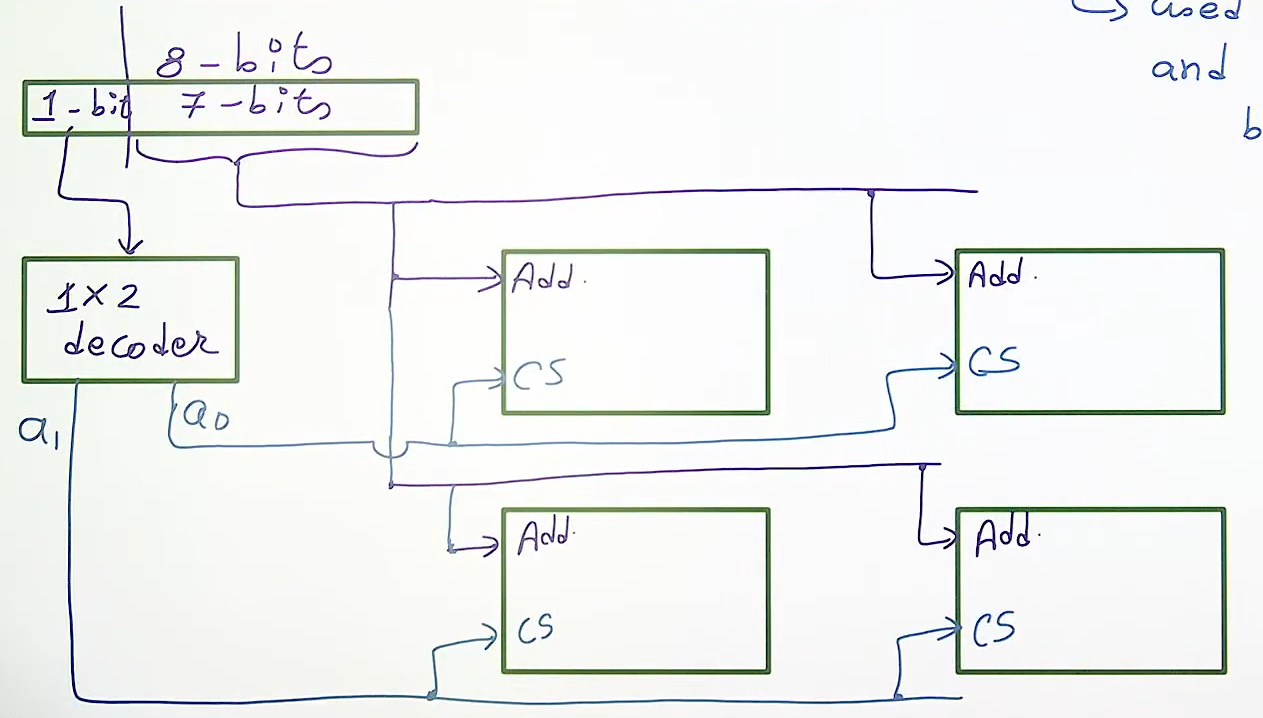 ↳ used
and
b
8-bits
1-bit 7-bits
1×2
decoder
a₁
a₀
Add.
CS
Add.
CS
Add.
CS
Add.
CS